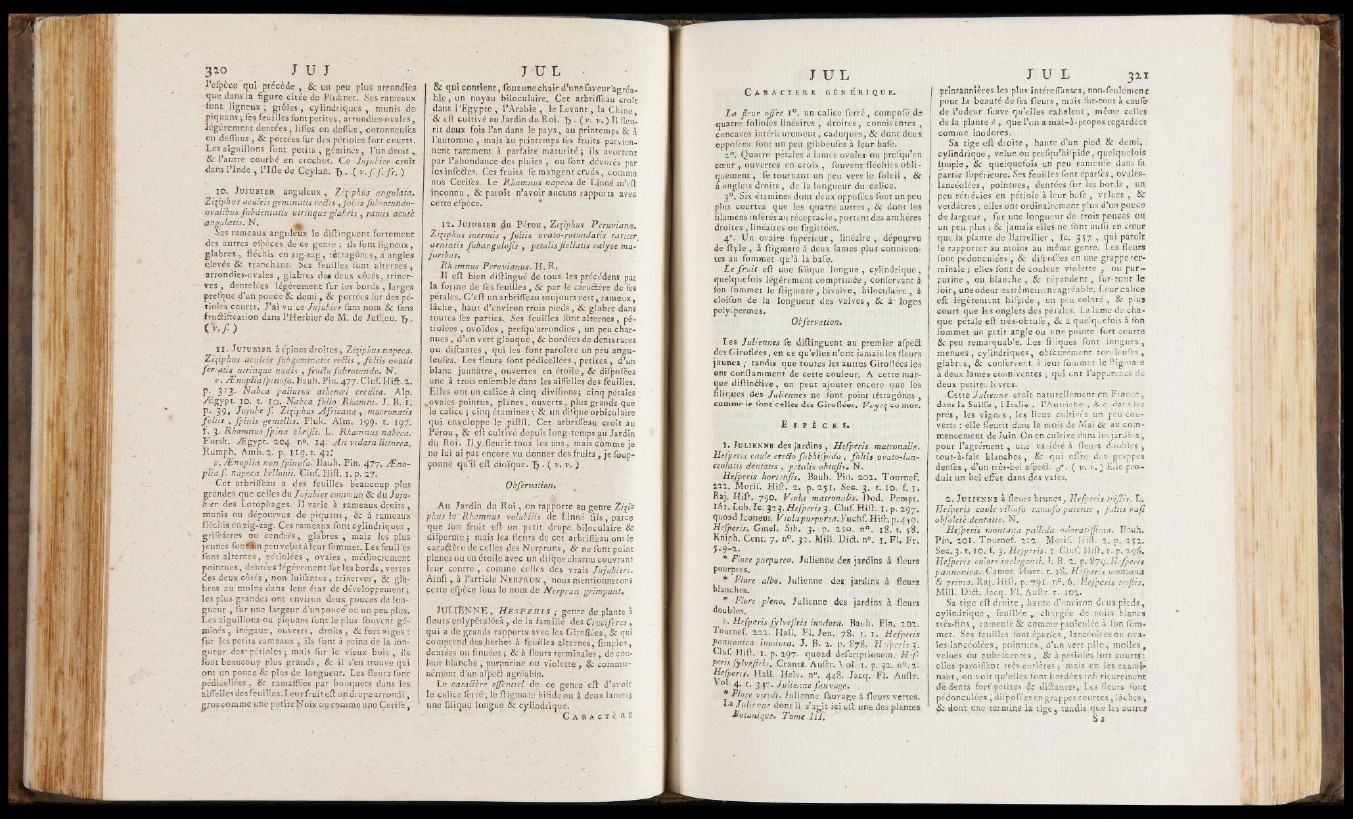 320 J U J
l'espèce qui précède, & un peu plus arrondies
que dans la figure citée de Pluknet. Ses rameaux
sont ligneux, grêles, cylindriques, munis de
piquans; ses feuilles sont petites, arrondies-ovales,
légèrement dentées, lisses en dessus, cotonneuses
en dessous, & portées sur des pétioles fort courts.
Les aiguillons sont petits, géminés, l'un droit,
& l'autre courbé en crochet. Ce Jujubier croît
dans l'Inde, l'Isle de Ceylan. ♄. (v. s. f. fr.)
10. JUJUBIER anguleux, Ziziphus angulata.
Ziziphus aculeis geminatis rectis, foliis subrotundo-
ovalibus subdentatis utrinque glabris, ramis acutè
angulatis. N.
Ses rameaux anguleux le distinguent fortement
des autres espèces de ce genre: ils sont ligneux,
glabres, fléchis en zig-zag, tétragônes, à angles
élevés & tranchans. Ses feuilles sont alternes,
arrondies-ovales, glabres des deux côtés, triner-
ves, dentelées légérement sur les bords, larges
presque d'un pouce & demi, & portées sur des pé-
tioles courts. J'ai vu ce Jujubier sans nom & sans
fructification dans l'Herbier de M. de Jussieu. ♄.
(v. s.)
11. JUJUBIER à épines droites, Ziziphus napeca.
Ziziphus aculeis subgeminatis rectis, foliis ovatis
serratis utrinque nudis, fructu subrotundo. N.
α. Ænoplia spinosa. Bauh. Pin. 477. Clus. Hist. 2.
p. 313. Nabca paliurus athenæi credita. Alp.
Ægypt. 10. t. 10. Nabca folio Rhamni. J. B. 1.
p. 39. Jujube s. Ziziphus Africana, mucronatis
foliis, spinis gemellis. Pluk. Alm. 199. t. 197.
f. 3. Rhamnus spina christi. L. Rhamnus nabeca.
Forsk. Ægypt. 204. n°. 14. An vidara littorea.
Rumph. Amb. 2. p. 119. t. 42?
β. Ænoplia non spinosa. Bauh. Pin. 477. Æno-
plia s. napeca bellonii. Clus. Hist. 1. p. 27.
Cet arbrisseau a des feuilles beaucoup plus
grandes que celles du Jujubier commun & du Juju-
bier des Lotophages. Il varie à rameaux droits,
munis ou dépourvus de piquans, & à rameaux
fléchis en zig-zag. Ces rameaux sont cylindriques,
grisâtres ou cendrés, glabres, mais les plus
jeunes sont un peu velus à leur sommet. Les feuilles
sont alternes, pétiolées, ovales, médiocrement
pointues, dentées légérement sur les bords, vertes
des deux côtés, non luisantes, trinerves, & gla-
bres au moins dans leur état de développement;
les plus grandes ont environ deux pouces de lon-
gueur, sur une largeur d'un pouce ou un peu plus.
Les aiguillons ou piquans sont le plus souvent gé-
minés, inégaux, ouverts, droits, & fort aigus:
sur les petits rameaux, ils sont à peine de la lon-
gueur des pétioles; mais sur le vieux bois, ils
sont beaucoup plus grands, & il s'en trouve qui
ont un pouce & plus de longueur. Les fleurs sont
pédicellées, & ramassées par bouquets dans les
aisselles des feuilles. Leur fruit est un drupe arrondi,
gros comme une petite Noix ou comme une Cerise,
J U L
& qui contient, sous une chair d'une saveur agréa-
ble, un noyau biloculaire. Cet arbrisseau croît
dans l'Egypte, l'Arabie, le Levant, la Chine,
& est cultivé au Jardin du Roi. ♄. (v. v.) Il fleu-
rit deux fois l'an dans le pays, au printemps & à
l'automne, mais au printemps ses fruits parvien-
nent rarement à parfaite maturité; ils avortent
par l'abondance des pluies, ou sont dévorés par
les insectes. Ces fruits se mangent cruds, comme
nos Cerises. Le Rhamnus napeca de Linné m'est
inconnu, & paroît n'avoir aucuns rapports avec
cette espèce.
12. JUJUBIER du Pérou, Ziziphus Peruviana.
Ziziphus inermis, foliis ovato-rotundatis rariter
dentatis subangulosis, petalis stellatis calyce ma-
joribus.
Rhamnus Peruvianus. H. R.
Il est bien distingué de tous les précédens par
la forme de ses feuilles, & par le caractère de ses
pétales. C'est un arbrisseau toujours vert, rameux,
lâche, haut d'environ trois pieds, & glabre dans
toutes ses parties. Ses feuilles sont alternes, pé-
tiolées, ovoïdes, presqu'arrondies, un peu char-
nues, d'un vert glauque, & bordées de dents rares
ou distantes, qui les font paroître un peu angu-
leuses. Les fleurs sont pédicellées, petites, d'un
blanc jaunâtre, ouvertes en étoile, & disposées
une à trois ensemble dans les aisselles des feuilles.
Elles ont un calice à cinq divisions; cinq pétales
ovales-pointus, planes, ouverts, plus grands que
le calice; cinq étamines; & un disque orbiculaire
qui enveloppe le pistil. Cet arbrisseau croît au
Pérou, & est cultivé depuis long-temps au Jardin
du Roi. Il y fleurit tous les ans, mais comme je
ne lui ai pas encore vu donner des fruits, je soup-
çonne qu'il est dioïque. ♄. (v. v.)
Observation.
Au Jardin du Roi, on rapporte au genre Zizi-
phus le Rhamnus volubilis de Linné fils, parce
que son fruit est un petit drupe biloculaire &
disperme; mais les fleurs de cet arbrisseau ont le
caractère de celles des Nerpruns, & ne sont point
planes ou en étoile avec un disque charnu couvrant
leur centre, comme celles des vrais Jujubiers.
Ainsi, à l'article NERPRUN, nous mentionnerons
cette espèce sous le nom de Nerprun grimpant.
JULIENNE, HESPERIS; genre de plante à
fleurs polypétalées, de la famille des Crucifères,
qui a de grands rapports avec les Giroflées, & qui
comprend des herbes à feuilles alternes, simples,
dentées ou sinuées; & à fleurs terminales, de cou-
leur blanche, purpurine ou violette, & commu-
nément d'un aspect agréable.
Le caractère essentiel de ce genre est d'avoir
le calice serré; le stigmate bifide ou à deux lames;
une silique longue & cylindrique.
CARACTÈRE
J U L
CARACTERE GÉNÉRIQUE.
La fleur offre 1°. un calice serré, composé de
quatre folioles linéaires, droites, conniventes,
concaves intérieurement, caduques, & donc deux
opposées sont un peu gibbeuses à leur base.
2°. Quatre pétales à lames ovales ou presqu'en
cœur, ouvertes en croix, souvent fléchies obli-
quement, se tournant un peu vers le soleil, &
à onglets droits, de la longueur du calice.
3°. Six étamines dont deux opposées sont un peu
plus courtes que les quatre autres, & dont les
filamens insérés au réceptacle, portent des anthères
droites, linéaires ou sagittées.
4°. Un ovaire supérieur, linéaire, dépourvu
de style, à stigmate à deux lames plus conniven-
tes au sommet qu'à la base.
Le fruit est une silique longue, cylindrique,
quelquefois légérement comprimée, conservant à
son sommet le stigmate, bivalve, biloculaire, à
cloison de la longueur des valves, & à loges
polyspermes.
Observation.
Les Juliennes se distinguent au premier aspect
des Giroflées, en ce qu'elles n'ont jamais les fleurs
jaunes; tandis que toutes les autres Giroflées les
ont constamment de cette couleur. A cette mar-
que distinctive, on peut ajouter encore que les
siliques des Juliennes ne sont point tétragônes,
comme le sont celles des Giroflées. Voyez ce mot.
ESPÈCES.
1. JULIENNE des jardins, Hesperis matronalis.
Hesperis caule erecto subhispido, foliis ovato-lan-
ceolatis dentatis, petalis obtusis. N.
Hesperis hortensis. Bauh. Pin. 202. Tournef.
222. Moris. Hist. 2. p. 251. Sec. 3. t. 10. f. 1.
Raj. Hist. 790. Viola matronalis. Dod. Pempt.
161. Lob. Ic. 323. Hesperis 3. Clus. Hist. 1. p. 297.
quoad Iconem. Viola purpurea. Fuchs. Hist. p. 459.
Hesperis. Gmel. Sib. 3. p. 250. n°. 18. t. 58.
Kniph. Cent. 7. n°. 32. Mill. Dict. n°. 1. Fl. Fr.
519-2.
* Flore purpureo. Julienne des jardins à fleurs
pourpres.
* Flore albo. Julienne des jardins à fleurs
blanches.
* Flore pleno. Julienne des jardins à fleurs
doubles.
β. Hesperis sylvestris inodora. Bauh. Pin. 202.
Tournef. 222. Hall. Fl. Jen. 78. t. 1. Hesperis
pannonica inodora. J. B. 2. p. 878. Hesperis 3.
Clus. Hist. 1. p. 297. quoad descriptionem. Hes-
peris sylvestris. Crantz. Austr. Vol. 1. p. 32. n°. 2.
Hesperis. Hall. Helv. n°. 448. Jacq. Fl. Austr.
Vol. 4. t. 347. Julienne sauvage.
* Flore viridi. Julienne sauvage à fleurs vertes.
La Julienne dont il s'agit ici est une des plantes
Botanique. Tome III.
J U L 321
printannières les plus intéressantes, non-seulement
pour la beauté de ses fleurs, mais sur-tout à cause
de l'odeur suave qu'elles exhalent, même celles
de la plante β, que l'on a mal-à-propos regardées
comme inodores.
Sa tige est droite, haute d'un pied & demi,
cylindrique, velue ou presqu'hispide, quelquefois
simple, & quelquefois un peu rameuse dans sa
partie supérieure. Ses feuilles sont éparses, ovales-
lancéolées, pointues, dentées sur les bords, un
peu rétrécies en pétiole à leur base, velues, &
verdâtres; elles ont ordinairement plus d'un pouce
de largeur, sur une longueur de trois pouces ou
un peu plus; & jamais elles ne sont aussi en cœur
que la plante de Barrelier, Ic. 357, qui paroît
se rapporter au moins au même genre. Les fleurs
sont pédonculées, & disposées en une grappe ter-
minale; elles sont de couleur violette, ou pur-
purine, ou blanche, & répandent, sur-tout le
soir, une odeur extrêmement agréable. Leur calice
est légérement hispide, un peu coloré, & plus
court que les onglets des pétales. La lame de cha-
que pétale est très-obtuse, & a quelquefois à son
sommet un petit angle ou une pointe fort courte
& peu remarquable. Les siliques sont longues,
menues, cylindriques, obscurément toruleuses,
glabres, & conservent à leur sommet le stigmate
à deux lames conniventes, qui ont l'apparence de
deux petites lèvres.
Cette Julienne croît naturellement en France,
dans la Suisse, l'Italie, l'Autriche, &c. dans les
prés, les vignes, les lieux cultivés un peu cou-
verts: elle fleurit dans le mois de Mai & au com-
mencement de Juin. On en cultive dans les jardins,
pour l'agrément, une variété à fleurs doubles,
tout-à-fait blanches, & qui offre des grappes
denses, d'un très-bel aspect. ♂. (v. v.) Elle pro-
duit un bel effet dans des vases.
2. JULIENNE à fleurs brunes, Hesperis tristis. L.
Hesperis caule villoso ramoso patente, foliis basi
obsoletè dentatis. N.
Hesperis montana pallida odoratissima. Bauh.
Pin. 202. Tournef. 222. Moris. Hist. 2. p. 252.
Sec. 3. t. 10. f. 3. Hesperis. 1. Clus. Hist. 1. p. 296.
Hesperis colore meleguzit. J. B. 2. p. 879. Hesperis
pannonica. Camer. Hort. t. 18. Hesperis montana
& prima. Raj. Hist. p. 791. n°. 6. Hesperis tristis.
Mill. Dict. Jacq. Fl. Austr. t. 102.
Sa tige est droite, haute d'environ deux pieds,
cylindrique, feuillée, chargée de poils blancs
très-fins, rameuse & comme paniculée à son som-
met. Ses feuilles sont éparses, lancéolées ou ova-
les-lancéolées, pointues, d'un vert pâle, molles,
velues ou pubescentes, & à pétioles fort courts:
elles paroissent très-entières; mais en les exami-
nant, on voit qu'elles sont bordées inférieurement
de dents fort petites & distantes. Les fleurs sont
pédonculées, disposées en grappes courtes, lâches,
& dont une termine la tige, tandis que les autres
S s